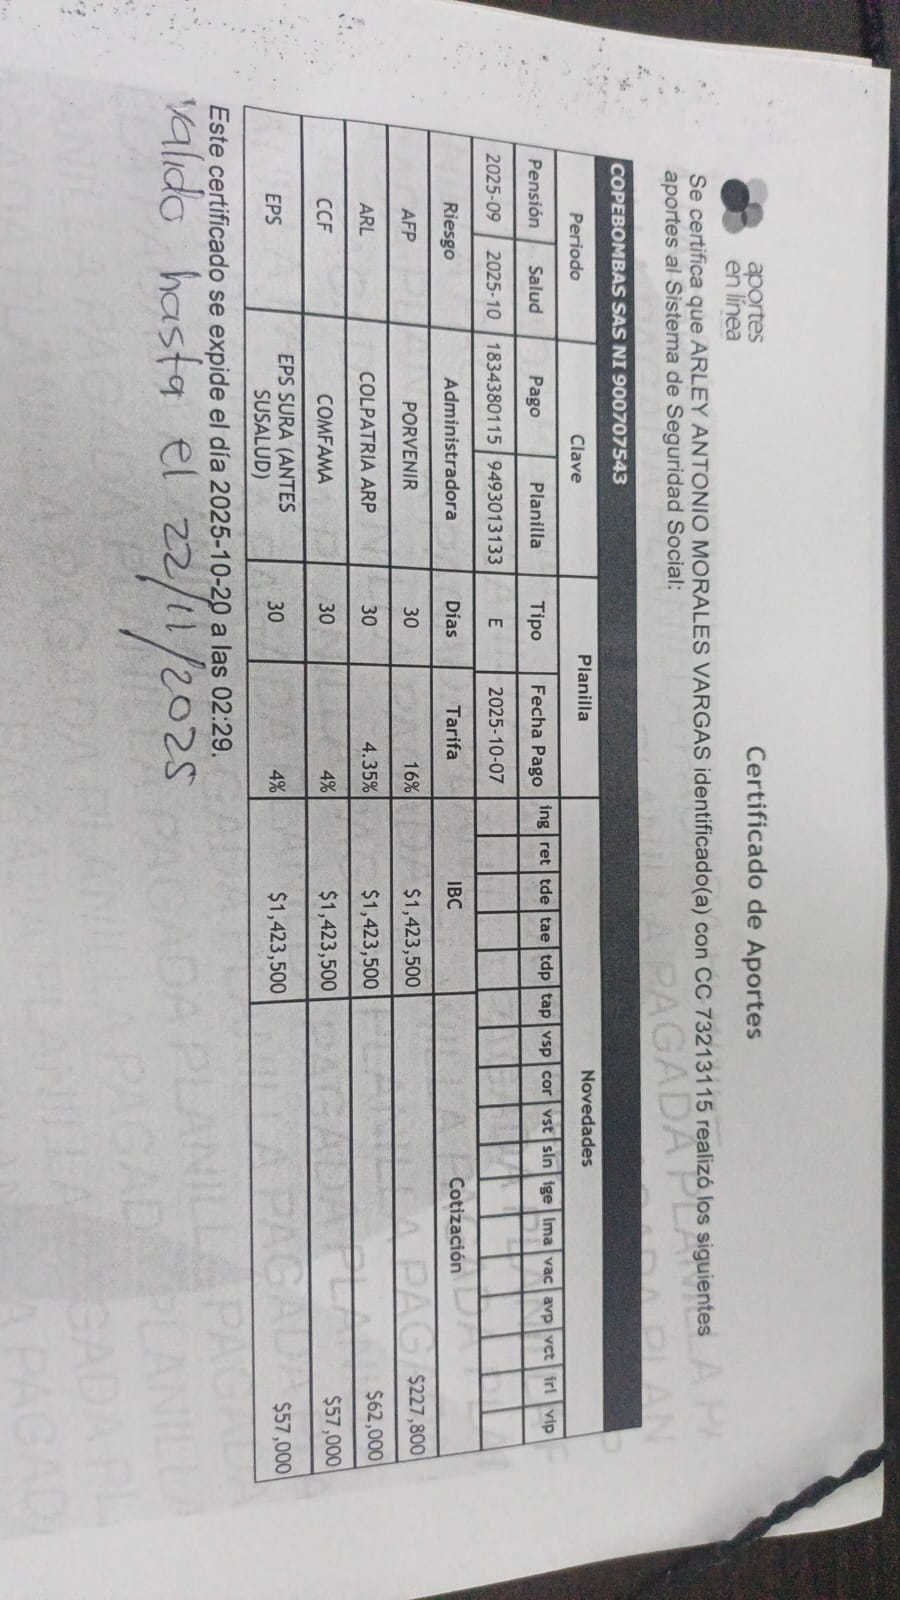 aportes
en línea
Certificado de Aportes
Se certifica que ARLEY ANTONIO MORALES VARGAS identificado(a) con CC 73213115 realizó los siguientes
aportes al Sistema de Seguridad Social:
COPEBOMBAS SAS NI 900707543
Periodo Clave Planilla Novedades
Pensión Salud Pago Planilla Tipo Fecha Pago ing ret tde tae tdp tap vsp cor vst sln ige lma vac avp vct irl vip
2025-09 2025-10 1834380115 9493013133 E 2025-10-07
Riesgo Administradora Días Tarifa IBC Cotización
AFP PORVENIR 30 16% $1,423,500 $227,800
ARL COLPATRIA ARP 30 4.35% $1,423,500 $62,000
CCF COMFAMA 30 4% $1,423,500 $57,000
EPS EPS SURA (ANTES SUSALUD) 30 4% $1,423,500 $57,000
Este certificado se expide el día 2025-10-20 a las 02:29.
valido hasta el 22/11/2025